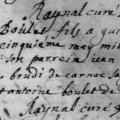 Raynal curé
Boulet fils a qui
cinquieme may mil
son parrein iean
brudi de carnac sa
antoine boulet de
Raynal curé